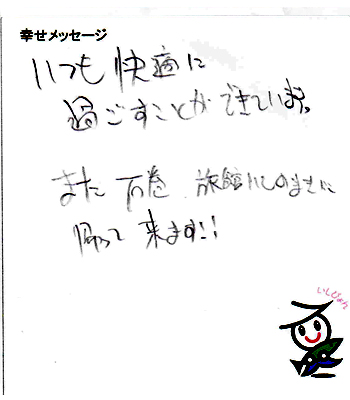 幸せメッセージ
いつも快適に
過ごすことができています。
また石巻 旅館にしのまきに
帰って来ます!!
いしぴょん